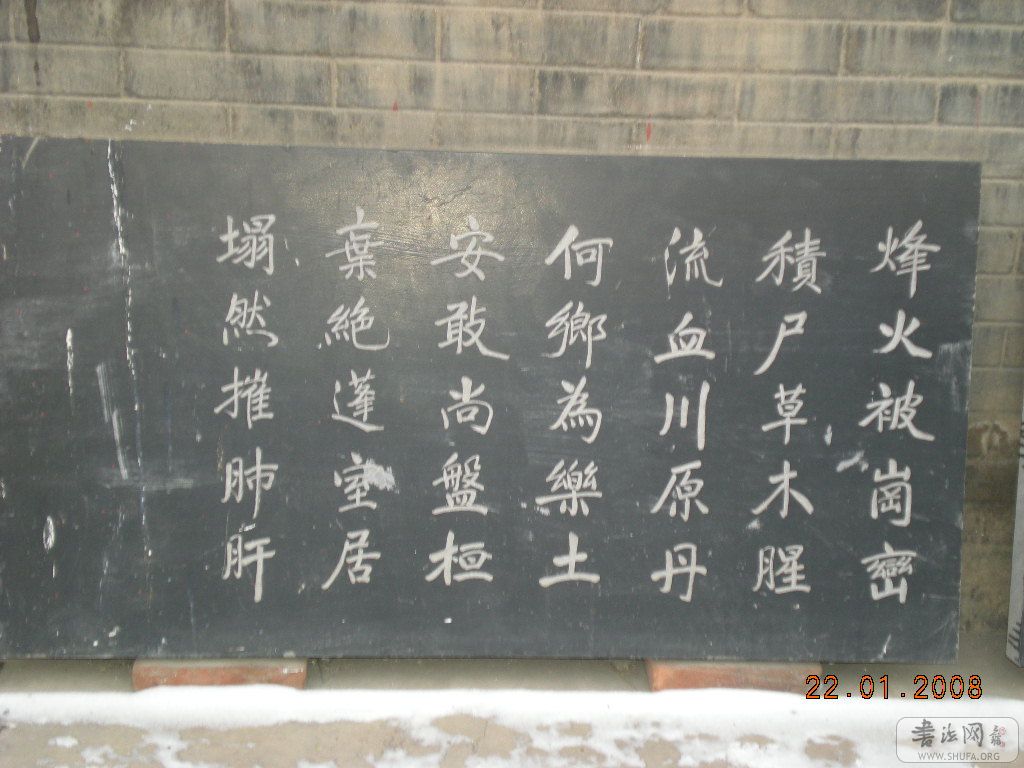 烽火被崗巒
積尸草木腥
流血川原丹
何鄉為樂土
安敢尚盤桓
棄絕蓬室居
塌然摧肺肝
22.01.2008
書法网
WWW.SHUFA.ORG